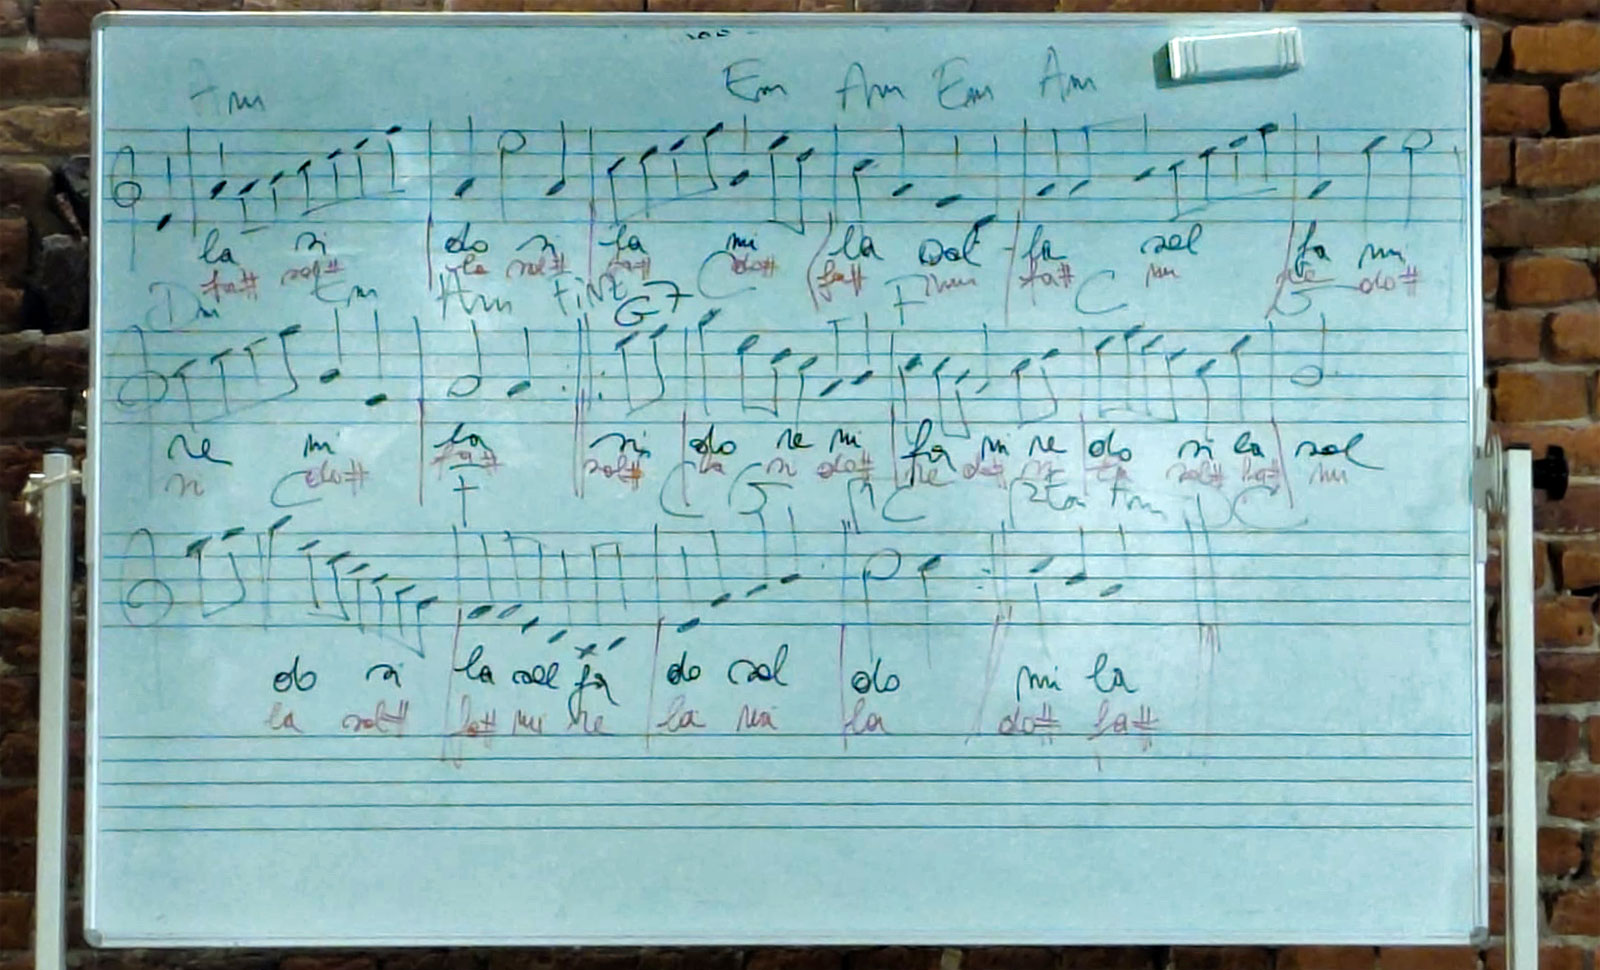 Am Em Am Em Am
la si do si fa mi la sol fa sol fa mi
fa# sol# la sol# fa# do# fa# mi fa# mi re do#
Dm Em Am FiNE G7 C F C G
re mi la si do re mi fa mi re do si la sol
si do# fa# sol# la si do# re do# si la sol# fa# mi
C F C G C 2ta Am C
do si la sol fa do sol do mi la
la sol# fa# mi re la mi la do# fa#